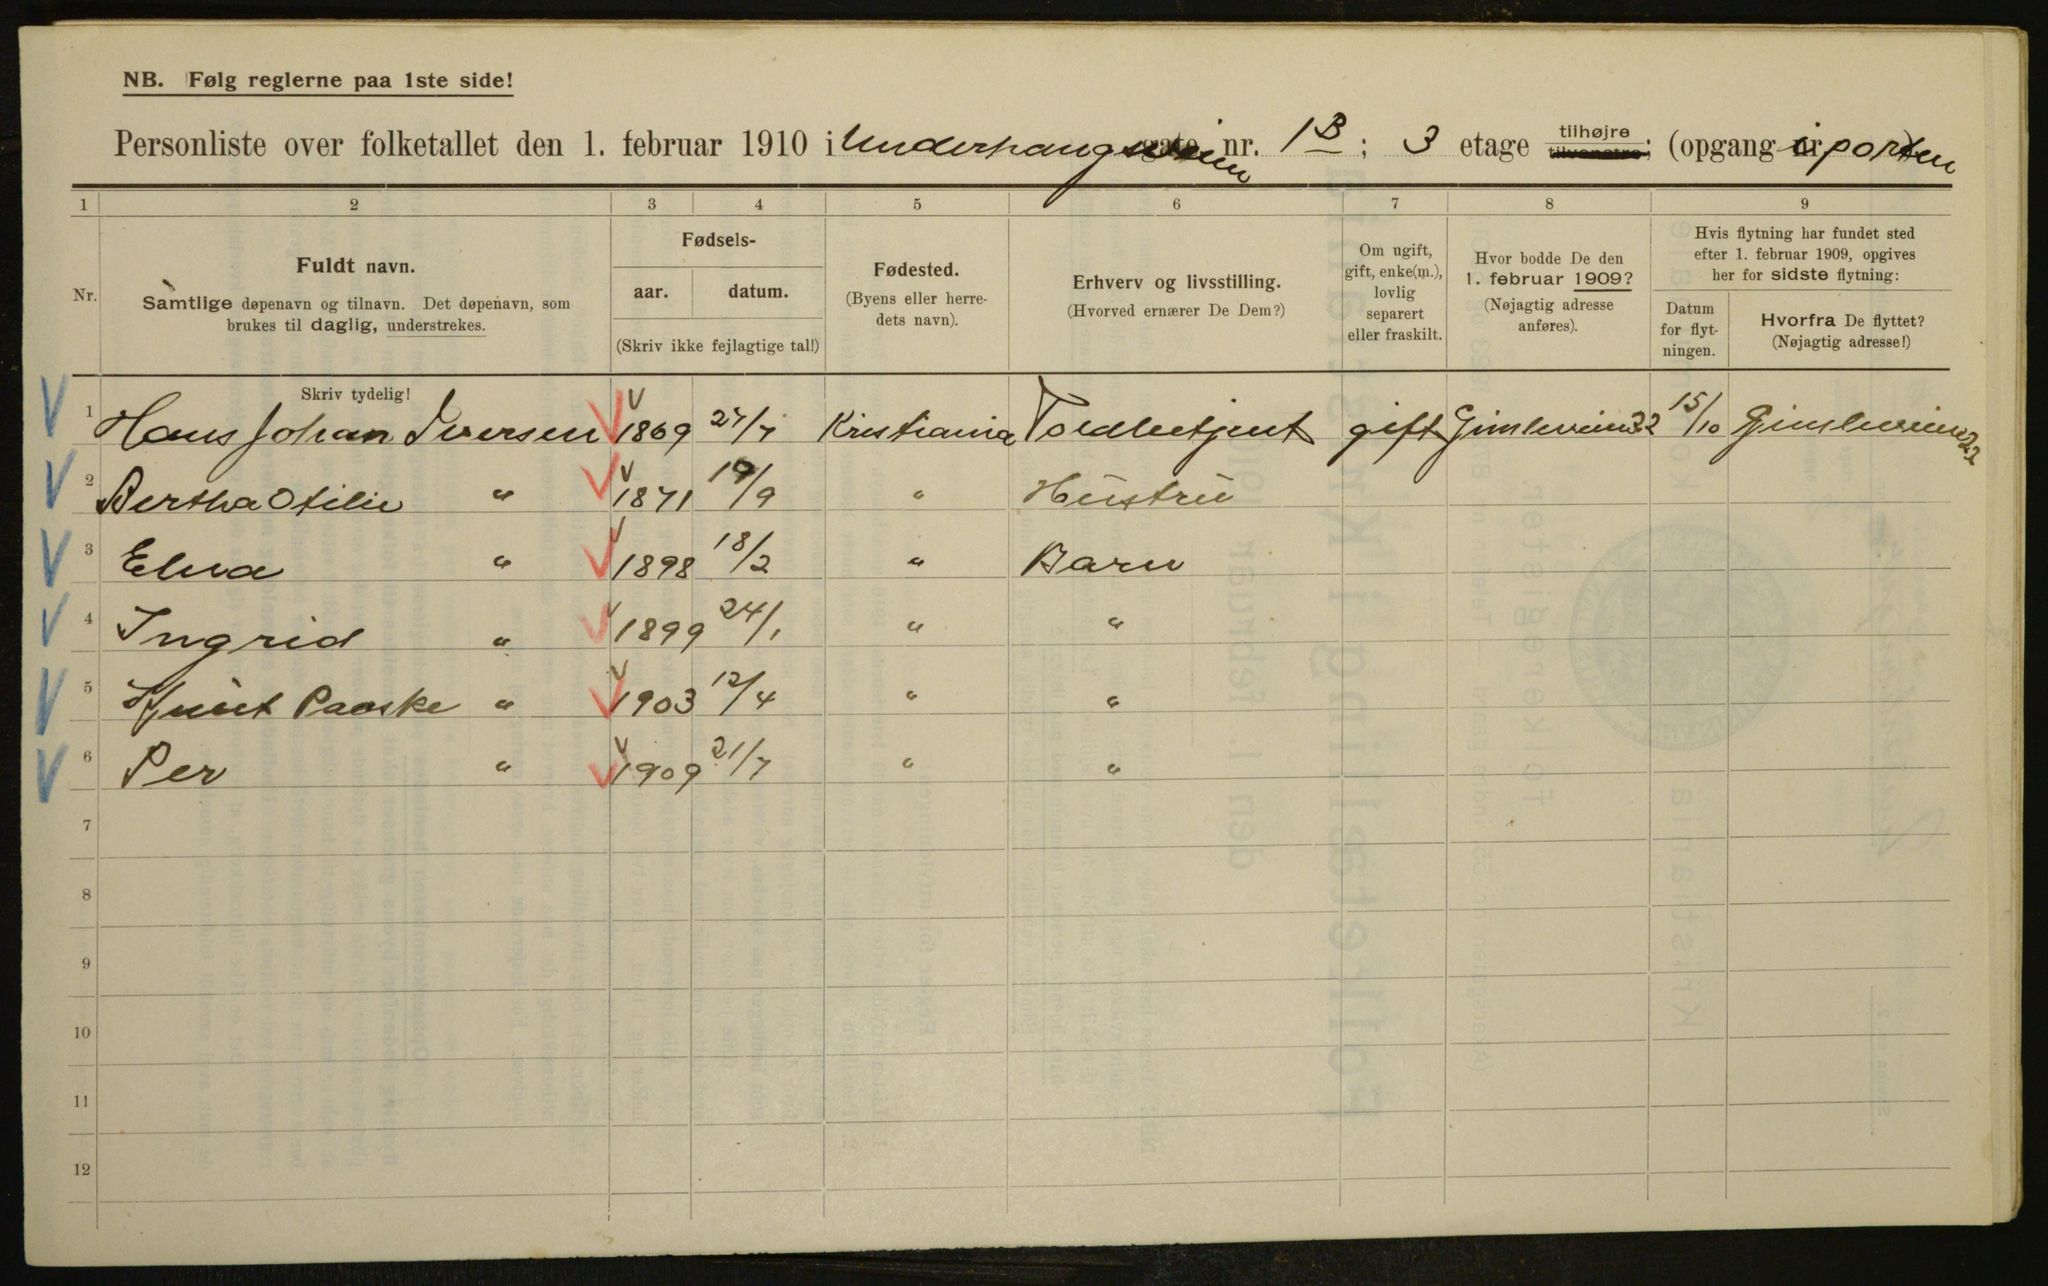 NB. Følg reglerne paa 1ste side!
Personliste over folketallet den 1. februar 1910 i Underhaugsveien gate nr. 1B ; 3 etage tilhøjre tilvenstre; (opgang nr. i porten
1 2 3 4 5 6 7 8 9
Nr.
Fuldt navn.
Samtlige døpenavn og tilnavn. Det døpenavn, som
brukes til daglig, understrekes.
Fødsels-
aar. datum.
(Skriv ikke fejlagtige tal!)
Fødested.
(Byens eller herre-
dets navn).
Erhverv og livsstilling.
(Hvorved ernærer De Dem?)
Om ugift,
gift, enke(m.),
lovlig
separert
eller fraskilt.
Hvor bodde De den
1. februar 1909?
(Nøjagtig adresse
anføres).
Hvis flytning har fundet sted
efter 1. februar 1909, opgives
her for sidste flytning:
Datum
for flyt-
ningen.
Hvorfra De flyttet?
(Nøjagtig adresse!)
Skriv tydelig!
1 Hans Johan Iversen 1869 27/7 Kristiania Toldbetjent gift Gimleveien 22 15/10 Gimleveien 22
2 Bertha Otilie " 1871 19/9 " Hustru
3 Elna " 1898 18/2 " Barn
4 Ingrid " 1899 24/1 " "
5 Paaske " 1903 12/4 " "
6 Per " 1909 21/7 " "
7
8
9
10
11
12